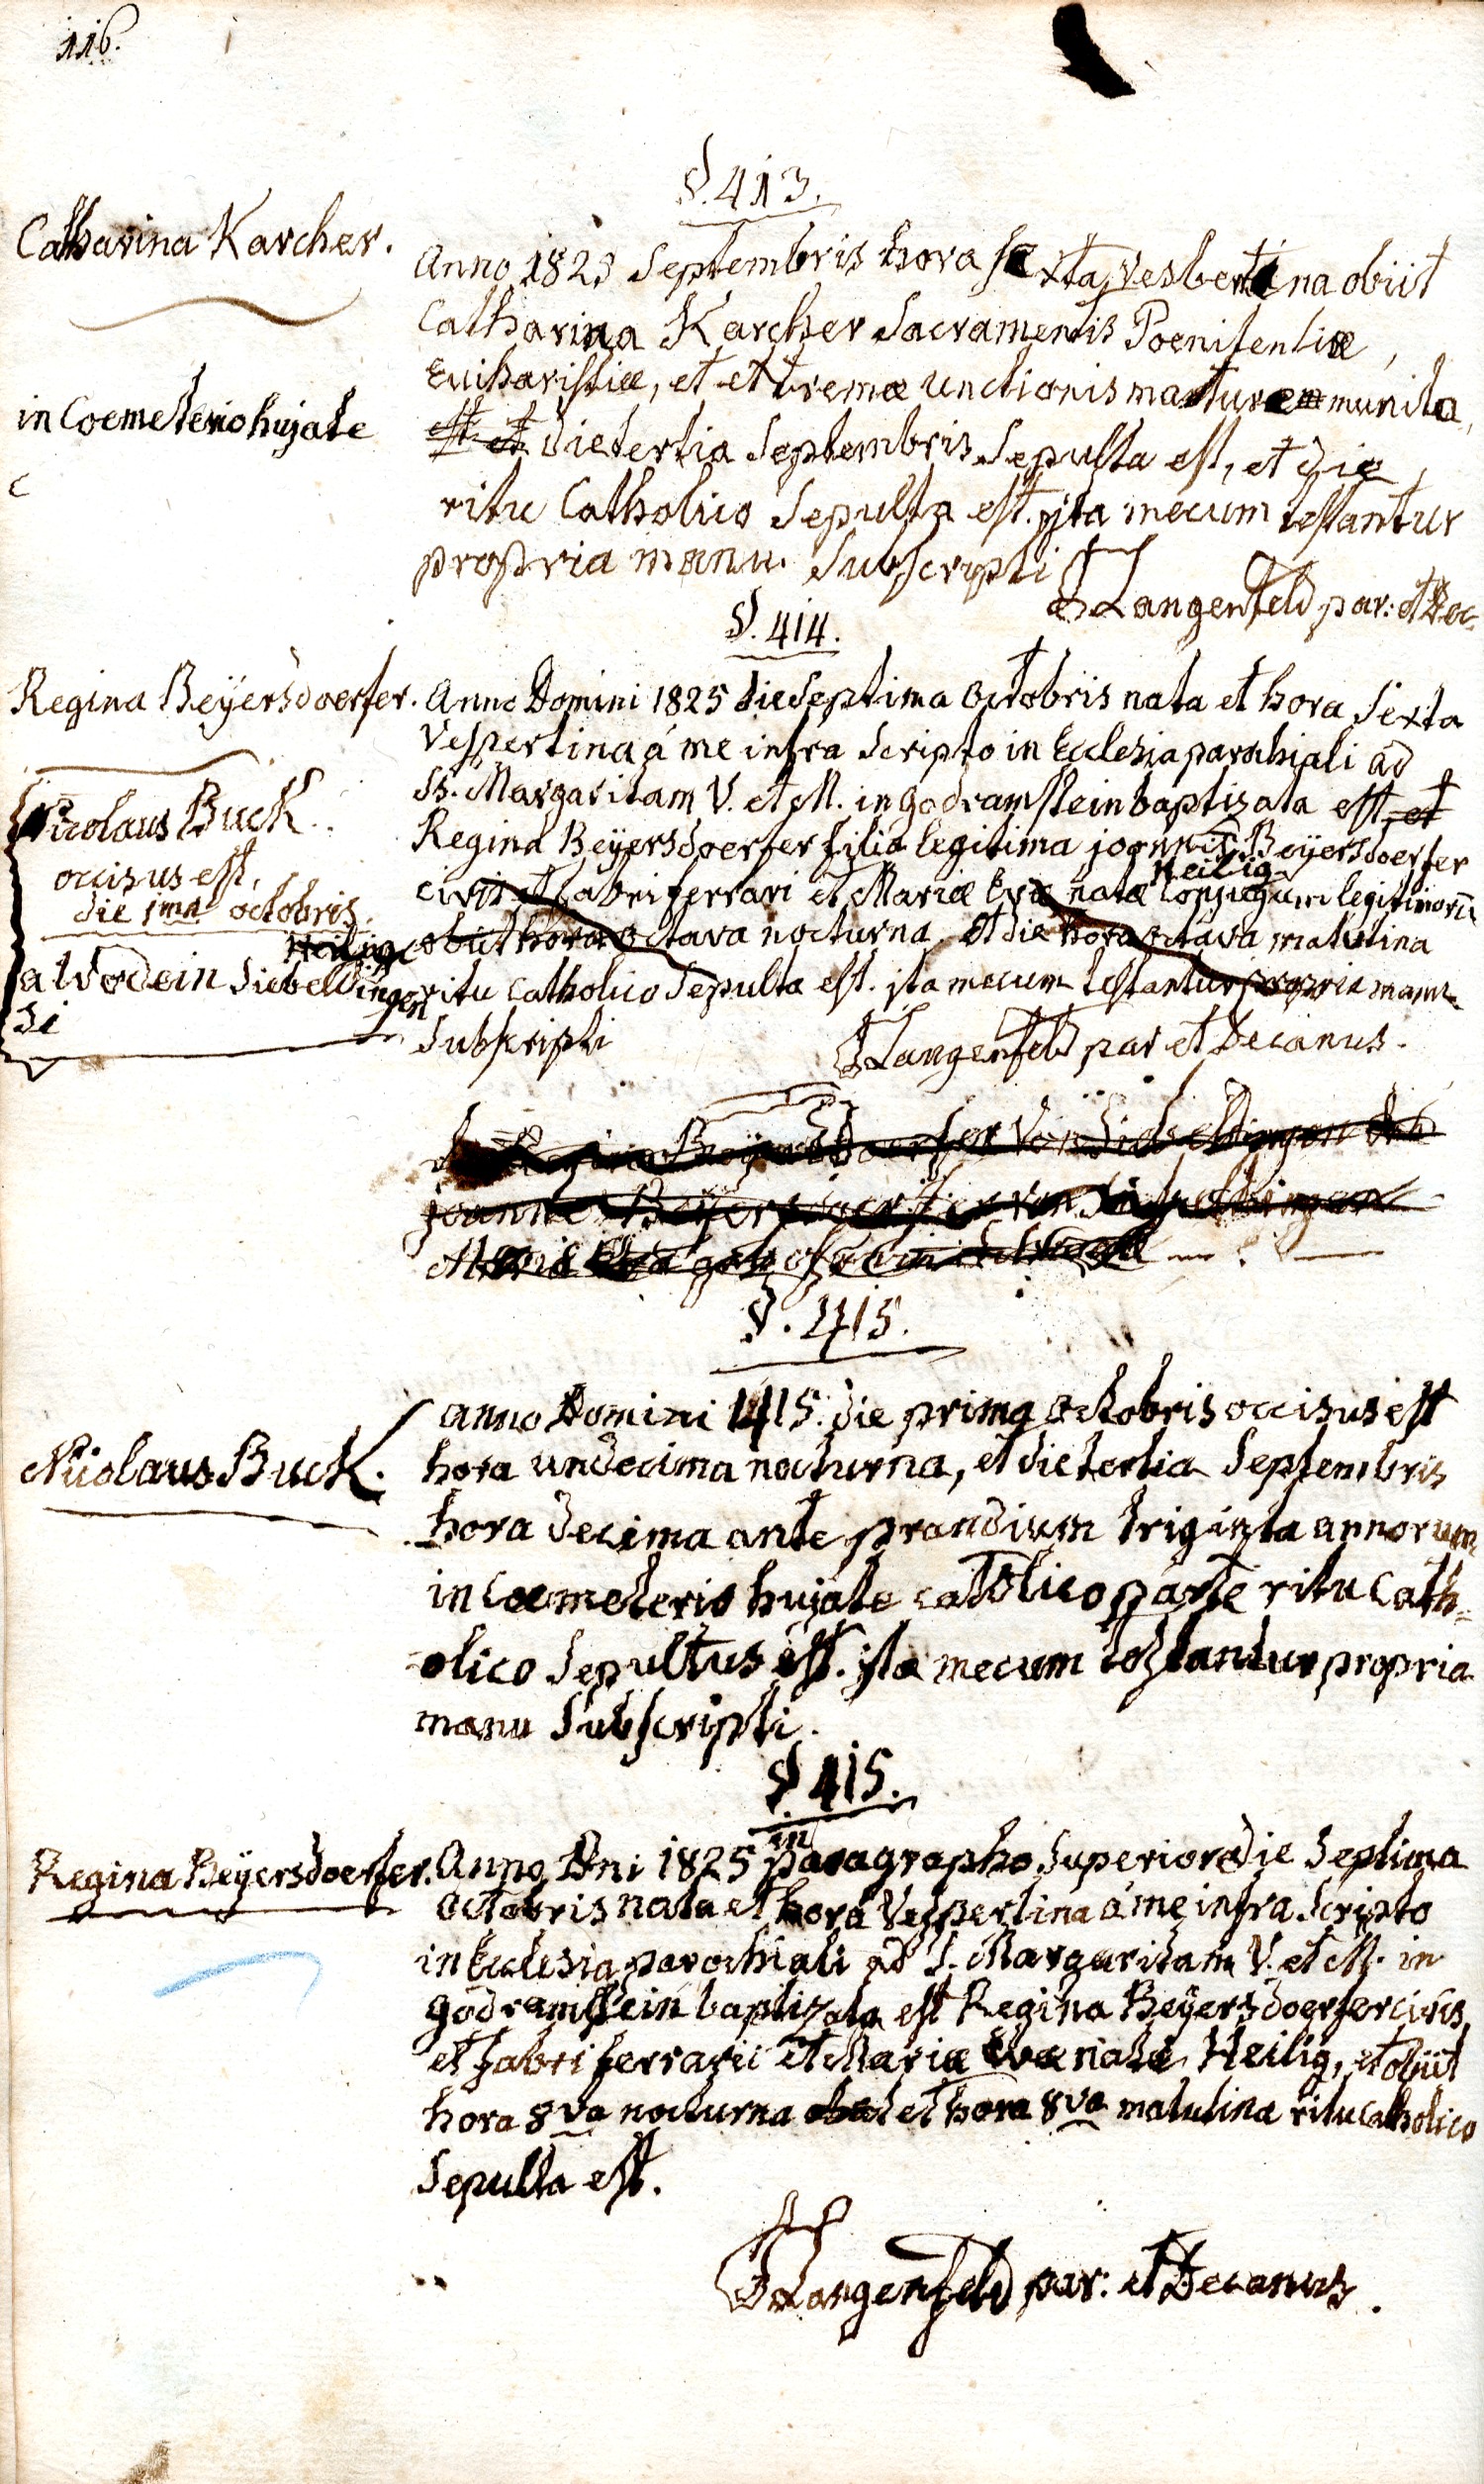 116.
§. 413.
Catharina Karcher.
Anno 1825 Septembris hora sexta vesbertina obiit
Catharina Karcher Sacramentis Poenitentiæ,
Euiharistiæ, et et tremæ unctionis mature munita,
in Coemeterio hujate
est et die tertia Septembris Sepulta est, et die
ritu Catholico Sepulta est. jta mecum testantur
propria manu. Subscripti
Langenfeld par: et Dec.
§. 414.
Regina Beÿersdoerfer.
Anno Domini 1825 die Septima octobris nata et hora Sexta
Vespertina á me infra Scripto in Ecclesia parochiali ad
SS. Margaritam V. et M. in godramstein baptizata est, et
Regina Beÿersdoerfer filia legitima joannis Beÿersdoerfer
Heilig
civis et fabri ferrari et Mariæ Evæ natæ Conjugum legitimorũ
obiit hora octava nocturna, et die hora octava matutina
ritu Catholico Sepulta est. jta mecum testantur propria manu
Subscripti
Langenfeld par et Decanus.
Nicolaus Buck.
occisus est,
die 1ma octobris.
Heilig
a Wodein Siebeldingen
Si
Regina Beÿersdoerfer von Siebeldingen
Beÿersdoerfer von Siebeldingen
§. 415.
Nicolaus Buck.
anno Domini 1415. die prima octobris occisus est
hora undecima nocturna, et die tertia Septembris
hora decima ante prandium triginta annorum
in Coemeterio hujate catolico parte ritu Cath=
olico Sepultus est. jta mecum testantur propria
manu Subscripti.
§ 415.
Regina Beÿersdoerfer.
in
Anno Dni 1825 paragrapho Superiore die Septima
octobris nata et hora Vespertina á me infra Scripto
in Ecclesia parochiali ad S. Margaritam V. et M. in
godramstein baptizata est Regina Beÿersdoerfer civis,
et fabri ferrarii et Mariæ Evæ natæ Heilig, et obiit
hora 8va nocturna et hora 8va matutina ritu catholico
Sepulta est.
Langenfeld par: et Decanus.